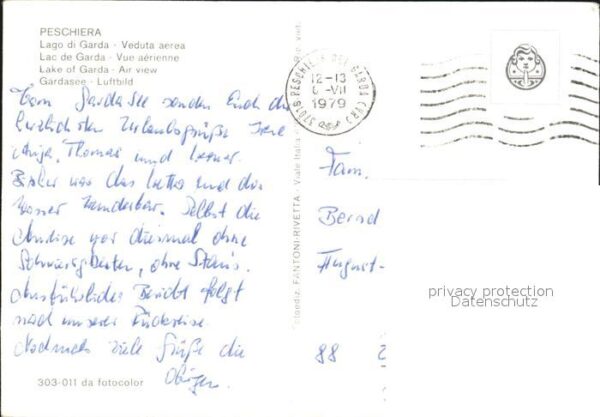 PESCHIERA
Lago di Garda - Veduta aerea
Lac de Garda - Vue aérienne
Lake of Garda - Air view
Gardasee - Luftbild
Vom Gardasee senden Euch die
herzlichsten Urlaubsgrüße Irene
Thomas und Werner.
Bisher war das Wetter und das
Wasser wunderbar. Selbst die
Anreise war diesmal ohne
Schwierigkeiten, ohne Staus.
Ausführlicher Bericht folgt
nach unserer Rückreise
Nochmals viele Grüße die
Obigen.
303-011 da fotocolor
Fotoediz. FANTONI-RIVETTA - Viale Italia
Rip. viet.
37019 PESCHIERA DEL GARDA (VR)
12-13
6-VII
1979
Fam.
Bernd
August-
88
privacy protection
Datenschutz